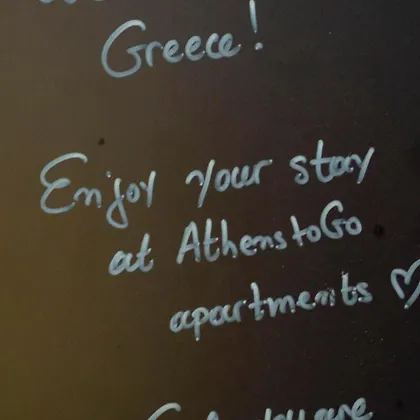 Greece!
Enjoy your stay
at AthenstoGo
apartments ♡
you are